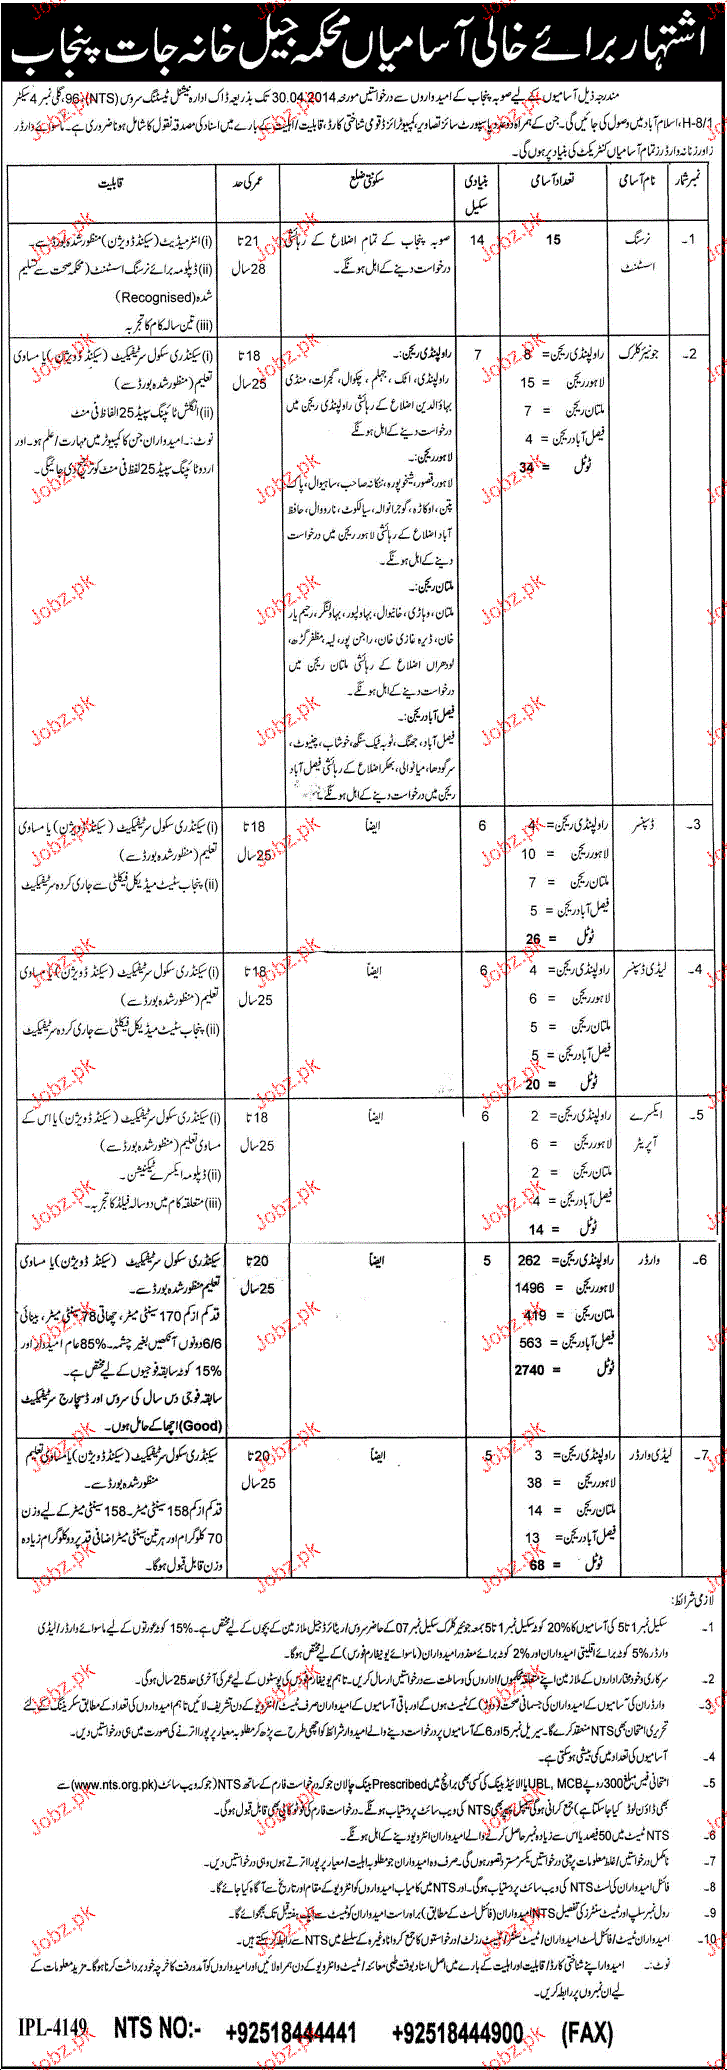 اشتہار برائے خالی آسامیاں محکمہ جیل خانہ جات پنجاب
مندرجہ ذیل آسامیوں کے لیے صوبہ پنجاب کے امیدواروں سے درخواستیں مورخہ 30.04.2014 تک بذریعہ ڈاک ادارہ نیشنل ٹیسٹنگ سروس (NTS)، 96، گلی نمبر 4 سیکٹر
H-8/1، اسلام آباد میں وصول کی جائیں گی۔ جن کے ہمراہ دو عدد پاسپورٹ سائز تصاویر، کمپیوٹرائزڈ قومی شناختی کارڈ، قابلیت/اہلیت کے بارے میں اسناد کی مصدقہ نقول کا شامل ہونا ضروری ہے۔ ماسوائے وارڈر
ز اور زنانہ وارڈرز تمام آسامیاں کنٹریکٹ کی بنیاد پر ہوں گی۔
نمبر شمار نام آسامی تعداد آسامی بنیادی سکیل سکونتی ضلع عمر کی حد قابلیت
1۔ نرسنگ اسسٹنٹ 15 14
صوبہ پنجاب کے تمام اضلاع کے رہائشی
درخواست دینے کے اہل ہونگے۔
21 تا
28 سال
(i) انٹرمیڈیٹ (سیکنڈ ڈویژن) منظور شدہ بورڈ سے۔
(ii) ڈپلومہ برائے نرسنگ اسسٹنٹ (محکمہ صحت سے تسلیم
شدہ (Recognised)
(iii) تین سالہ کام کا تجربہ
2۔ جونیئر کلرک
راولپنڈی ریجن = 8
لاہور ریجن = 15
ملتان ریجن = 7
فیصل آباد ریجن = 4
ٹوٹل = 34
7
راولپنڈی ریجن:۔
راولپنڈی، اٹک، جہلم، چکوال، گجرات، منڈی
بہاؤالدین اضلاع کے رہائشی راولپنڈی ریجن میں
درخواست دینے کے اہل ہونگے
لاہور ریجن:۔
لاہور، قصور، شیخوپورہ، ننکانہ صاحب، ساہیوال، پاک
پتن، اوکاڑہ، گوجرانوالہ، سیالکوٹ، نارووال، حافظ
آباد اضلاع کے رہائشی لاہور ریجن میں درخواست
دینے کے اہل ہونگے۔
ملتان ریجن:۔
ملتان، وہاڑی، خانیوال، بہاولپور، بہاولنگر، رحیم یار
خان، ڈیرہ غازی خان، راجن پور، لیہ، مظفر گڑھ،
لودھراں اضلاع کے رہائشی ملتان ریجن میں
درخواست دینے کے اہل ہونگے۔
فیصل آباد ریجن:۔
فیصل آباد، جھنگ، ٹوبہ ٹیک سنگھ، خوشاب، چنیوٹ،
سرگودھا، میانوالی، بھکر اضلاع کے رہائشی فیصل آباد
ریجن میں درخواست دینے کے اہل ہونگے۔
18 تا
25 سال
(i) سیکنڈری سکول سرٹیفکیٹ (سیکنڈ ڈویژن) یا مساوی
تعلیم (منظور شدہ بورڈ سے)
(ii) انگلش ٹائپنگ سپیڈ 25 الفاظ فی منٹ
نوٹ:۔ امیدواران جن کا کمپیوٹر میں مہارت/علم ہو۔ اور
اردو ٹائپنگ سپیڈ 25 لفظ فی منٹ کو ترجیح دی جائیگی۔
3۔ ڈسپنسر
راولپنڈی ریجن = 4
لاہور ریجن = 10
ملتان ریجن = 7
فیصل آباد ریجن = 5
ٹوٹل = 26
6 ایضاً
18 تا
25 سال
(i) سیکنڈری سکول سرٹیفکیٹ (سیکنڈ ڈویژن) یا مساوی
تعلیم (منظور شدہ بورڈ سے)
(ii) پنجاب سٹیٹ میڈیکل فیکلٹی سے جاری کردہ سرٹیفکیٹ
4۔ لیڈی ڈسپنسر
راولپنڈی ریجن = 4
لاہور ریجن = 6
ملتان ریجن = 5
فیصل آباد ریجن = 5
ٹوٹل = 20
6 ایضاً
18 تا
25 سال
(i) سیکنڈری سکول سرٹیفکیٹ (سیکنڈ ڈویژن) یا مساوی
تعلیم (منظور شدہ بورڈ سے)
(ii) پنجاب سٹیٹ میڈیکل فیکلٹی سے جاری کردہ سرٹیفکیٹ
5۔ ایکسرے آپریٹر
راولپنڈی ریجن = 2
لاہور ریجن = 6
ملتان ریجن = 2
فیصل آباد ریجن = 4
ٹوٹل = 14
6 ایضاً
18 تا
25 سال
(i) سیکنڈری سکول سرٹیفکیٹ (سیکنڈ ڈویژن) یا اس کے
مساوی تعلیم (منظور شدہ بورڈ سے)
(ii) ڈپلومہ ایکسرے ٹیکنیشن۔
(iii) متعلقہ کام میں دو سالہ فیلڈ کا تجربہ۔
6۔ وارڈر
راولپنڈی ریجن = 262
لاہور ریجن = 1496
ملتان ریجن = 419
فیصل آباد ریجن = 563
ٹوٹل = 2740
5 ایضاً
20 تا
25 سال
سیکنڈری سکول سرٹیفکیٹ (سیکنڈ ڈویژن) یا مساوی
تعلیم منظور شدہ بورڈ سے۔
قد کم از کم 170 سینٹی میٹر، چھاتی 78 سینٹی میٹر، بینائی
6/6 دونوں آنکھیں بغیر چشمہ۔ 85% عام امیدوار اور
15% کوٹہ سابقہ فوجیوں کے لیے مختص ہے۔
سابقہ فوجی دس سال کی سروس اور ڈسچارج سرٹیفکیٹ
(Good) اچھا کے حامل ہوں۔
7۔ لیڈی وارڈر
راولپنڈی ریجن = 3
لاہور ریجن = 38
ملتان ریجن = 14
فیصل آباد ریجن = 13
ٹوٹل = 68
5 ایضاً
20 تا
25 سال
سیکنڈری سکول سرٹیفکیٹ (سیکنڈ ڈویژن) یا مساوی تعلیم
منظور شدہ بورڈ سے۔
قد کم از کم 158 سینٹی میٹر۔ 158 سینٹی میٹر کے لیے وزن
70 کلوگرام اور ہر تین سینٹی میٹر اضافی قد پر دو کلوگرام زیادہ
وزن قابل قبول ہوگا۔
لازمی شرائط:
1۔ سکیل نمبر 1 تا 5 کی آسامیوں کا 20% کوٹہ سکیل نمبر 1 تا 5 بمعہ جونیئر کلرک سکیل نمبر 07 کے حاضر سروس/ریٹائرڈ جیل ملازمین کے بچوں کے لیے مختص ہے۔ 15% کوٹہ عورتوں کے لیے ماسوائے وارڈر/لیڈی
وارڈر 5% کوٹہ برائے اقلیتی امیدواران اور 2% کوٹہ برائے معذور امیدواران (ماسوائے یونیفارم فورس) کے لیے مختص ہوگا۔
2۔ سرکاری و خود مختار اداروں کے ملازمین اپنے متعلقہ محکموں/اداروں کی وساطت سے درخواستیں ارسال کریں۔ تاہم یونیفارم فورس کی پوسٹوں کے لیے عمر کی آخری حد 25 سال ہوگی۔
3۔ وارڈران کی آسامیوں کے امیدواران کی جسمانی صحت (دوڑ) کے ٹیسٹ ہوں گے اور باقی آسامیوں کے امیدواران صرف ٹیسٹ/انٹرویو کے دن تشریف لائیں تاہم امیدواروں کی تعداد کے مطابق سکریننگ کے لئے
تحریری امتحان بھی NTS منعقد کرے گا۔ سیریل نمبر 5 اور 6 کے آسامیوں پر درخواست دینے والے امیدوار شرائط کو اچھی طرح سے پڑھ کر مطلوبہ معیار پر پورا اترنے کی صورت میں ہی درخواستیں دیں۔
4۔ آسامیوں کی تعداد میں کمی بیشی ہوسکتی ہے۔
5۔ امتحانی فیس مبلغ 300 روپے UBL, MCB یا الائیڈ بینک کی کسی بھی برانچ میں Prescribed بینک چالان جو کہ درخواست فارم کے ساتھ NTS (جو کہ ویب سائٹ (www.nts.org.pk) سے
بھی ڈاؤن لوڈ کیا جاسکتا ہے) جمع کرانی ہوگی بھی NTS کی ویب سائٹ پر دستیاب ہونگے۔ درخواست فارم کی فوٹو کاپی بھی قابل قبول ہوگی۔
6۔ NTS ٹیسٹ میں 50 فیصد یا اس سے زیادہ نمبر حاصل کرنے والے امیدواران انٹرویو دینے کے اہل ہونگے۔
7۔ نامکمل درخواستیں/غلط معلومات پر مبنی درخواستیں یکسر مسترد تصور ہوں گی۔ صرف وہ امیدواران جو مطلوبہ اہلیت/معیار پر پورا اترتے ہوں وہی درخواستیں دیں۔
8۔ فائنل امیدواران کی لسٹ NTS کی ویب سائٹ پر دستیاب ہوگی۔ اور NTS میں کامیاب امیدواروں کو انٹرویو کے مقام اور تاریخ سے آگاہ کیا جائے گا۔
9۔ رول نمبر سلپ اور ٹیسٹ سنٹرز کی تفصیل NTS امیدواران (فائنل لسٹ کے مطابق) براہ راست امیدواران کو ٹیسٹ سے ایک ہفتہ قبل تک بھجوائے گا۔
10۔ امیدواران ٹیسٹ/فائنل لسٹ امیدواران/ٹیسٹ سنٹر/ٹیسٹ رزلٹ/درخواستوں کا جمع کروانا وغیرہ کے سلسلے میں NTS سے رابطہ کرسکتے ہیں۔
نوٹ:۔ امیدوار اپنے شناختی کارڈ/قابلیت اور اہلیت کے بارے میں اصل اسناد بوقت طبی معائنہ/ٹیسٹ و انٹرویو کے دن ہمراہ لائیں اور امیدواروں کو آمدورفت کا خرچہ خود برداشت کرنا ہوگا۔ مزید معلومات کے
لیے ان نمبروں پر رابطہ کریں۔
IPL-4149 NTS NO:- +92518444441 +92518444900 (FAX)
Jobz.pk